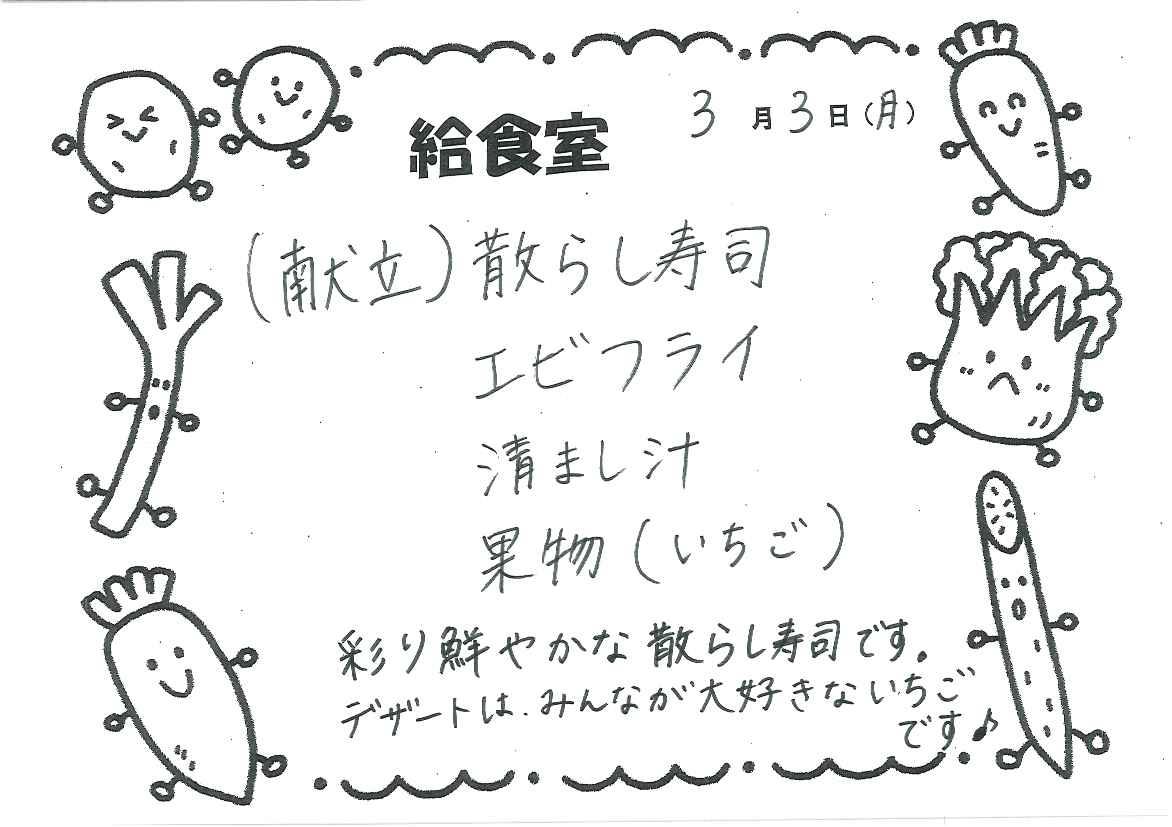 給食室
3月3日(月)
(献立)散らし寿司
エビフライ
清まし汁
果物(いちご)
彩り鮮やかな散らし寿司です。
デザートは、みんなが大好きないちご
です♪